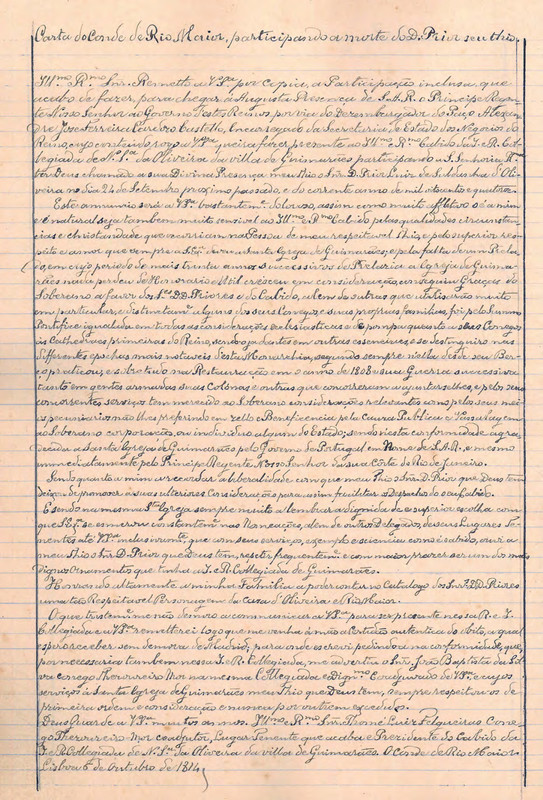 Carta do Conde de Rio Maior, participando a morte do D. Prior seu thio,
Ill.mo R.mo Snr. Remetto a V. S.ª por copia, a Participação inclusa, que
acabo de fazer, para chegar á Augusta Presença de S. A. R. o Principe Regen-
te Nosso Senhor ao Governo d'estes Reinos, por via do Desembargador do Paço Alexan-
dre José Ferreira Castello, Encarregado da Secretaria, de Estado dos Negocios do
Reino, cujo contendo rogo a V. S.ª queira fazer presente ao Ill.mo e R.mo Cabido da I. e R. Col-
legiada de N. S.ª da Oliveira da villa de Guimarães participando a S. Senhoria R.ma
ter Deus chamado a sua Divina Presença meu thio o Snr. D. Prior Luiz de Saldanha d'Oli-
veira no dia 24 de Setembro, proximo passado, e do corrente anno de mil oitocentos e quatorze.
Este annuncio será a V. S.ª bastantem.te doloroso, assim como muito afflictivo é a mim
e é natural seja tambem muito sensivel ao Ill.mo e R.mo Cabido pelas qualidades circunstan-
cias e christandade que ocorriam na Pessoa de meu respeitavel thio, e pelo superior res-
peito e amor que sempre a S. Ex.ª deveu a Santa Igreja de Guimarães; e pela falta de um Prela-
do em cujo periodo de mais trinta annos successivos de Prelazia a Igreja de Guima-
rães nada perdeu de Honorario Mas cresceu em consideração, conseguiu Graças do
Soberano a favor dos S.res DD. Priores e do Cabido, alem de outras que utilisarão muito
em particular, e distinctam.te alguns dos seus Conegos, e suas proprias familias, foi pelo Summo
Pontifice igualada em todas as considerações ecclesiasticas e de pompa quanto a seus Conegos
ás Cathedraes primeiras do Reino, sendo ajudantes em outras essenciaes e se destinguiu nas
differentes epochas mais notaveis d'esta Monarchia, segundo sempre n'ella desde seu Ber-
ço praticou, e sobretudo na Restauração em o anno de 1808 e sua Guerra successiva
tanto em gentes armadas suas Colonas e outras que concorreram a juntar-se lhes, e pelos seus
concorrentes serviços tem merecido ao Soberano considerações relevantes como pelos seus mei-
os pecuniarios não lhes preferindo em zello e Beneficencia pela Causa Publica e Vassallagem
ao Soberano corporação, ou individuo algum do Estado; sendo n'esta conformidade agra-
decida a Santa Igreja de Guimarães pelo Governo de Portugal em Nome de S. A. R. e mesmo
immediatamente pelo Principe Regente Nosso Senhor da sua Côrte do Rio de Janeiro.
Sendo quanto a mim a recordar a liberalidade com que meu thio o Snr. D. Prior que Deus tem
deixou de promover a suas ulteriores Considerações para assim facilitar o Despacho do seu Cabido.
E sendo na mesma S.ta Igreja sempre muito a lembrar a digna e a superior escolha com
que S. Ex.ª se esmerou constantem.te nas Nomeações, alem de outros Delegados, dos seus Lugares Te-
nentes até V. S.ª inclusivamente, que com seus serviços, exemplo e sciencia, como é sabido, ouvi a
meu thio o Snr. D. Prior que Deus tem, repetir frequentem.te e com maior prazer ser um dos mais
dignos Ornamentos que tinha a I. e R. Collegiada de Guimarães.
Honrando altamente a minha Familia a poder contar no Catalogo dos Snr.es DD. Priores
uma tão Respeitavel Personagem da casa d'Oliveira e Rio Maior.
O que tristem.te me não demoro a communicar a V. S.ª para ser presente n'essa R. e I.
Collegiada e a V. S.ª remetterei logo que me venha á mão a Certidão autentica do obito, a qual
espero receber sem demora de Madrid; para onde escrevi pedindo-a na conformidade, que
por necessaria tambem n'essa I. e R. Collegiada, me advertiu o Snr. João Baptista da Sil-
va conego Thesoureiro Mor na mesma Collegiada e Digm.º Coadjuvado de V. S.ª, e cujos
serviços á Santa Igreja de Guimarães meu thio que Deus tem, sempre respeitou os de
primeira ordem e consideração e nunca por outrem excedidos.
Deus Guarde a V. S.ª muitos annos. Ill.mo e R.mo Snr. Thomé Luiz Felgueiras Cone-
go Thesoureiro Mor coadjutor, Lugar Tenente que acaba e Presidente do Cabido da
I. e R. Collegiada de N. S.ª da Oliveira da villa de Guimarães. O Conde de Rio Maior.
Lisboa 6 de Outubro de 1814,